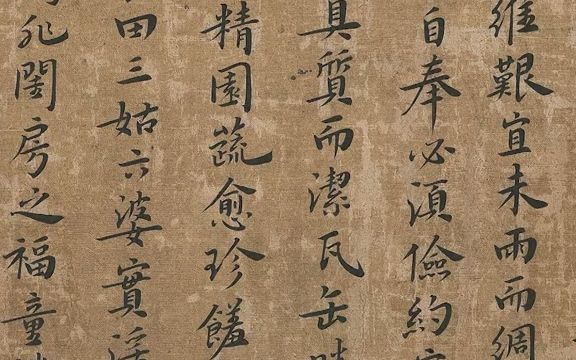 維艱宜未雨而綢
自奉必須儉約
具質而潔瓦缶
精園蔬愈珍饈
田三姑六婆實淫
非閨房之福童